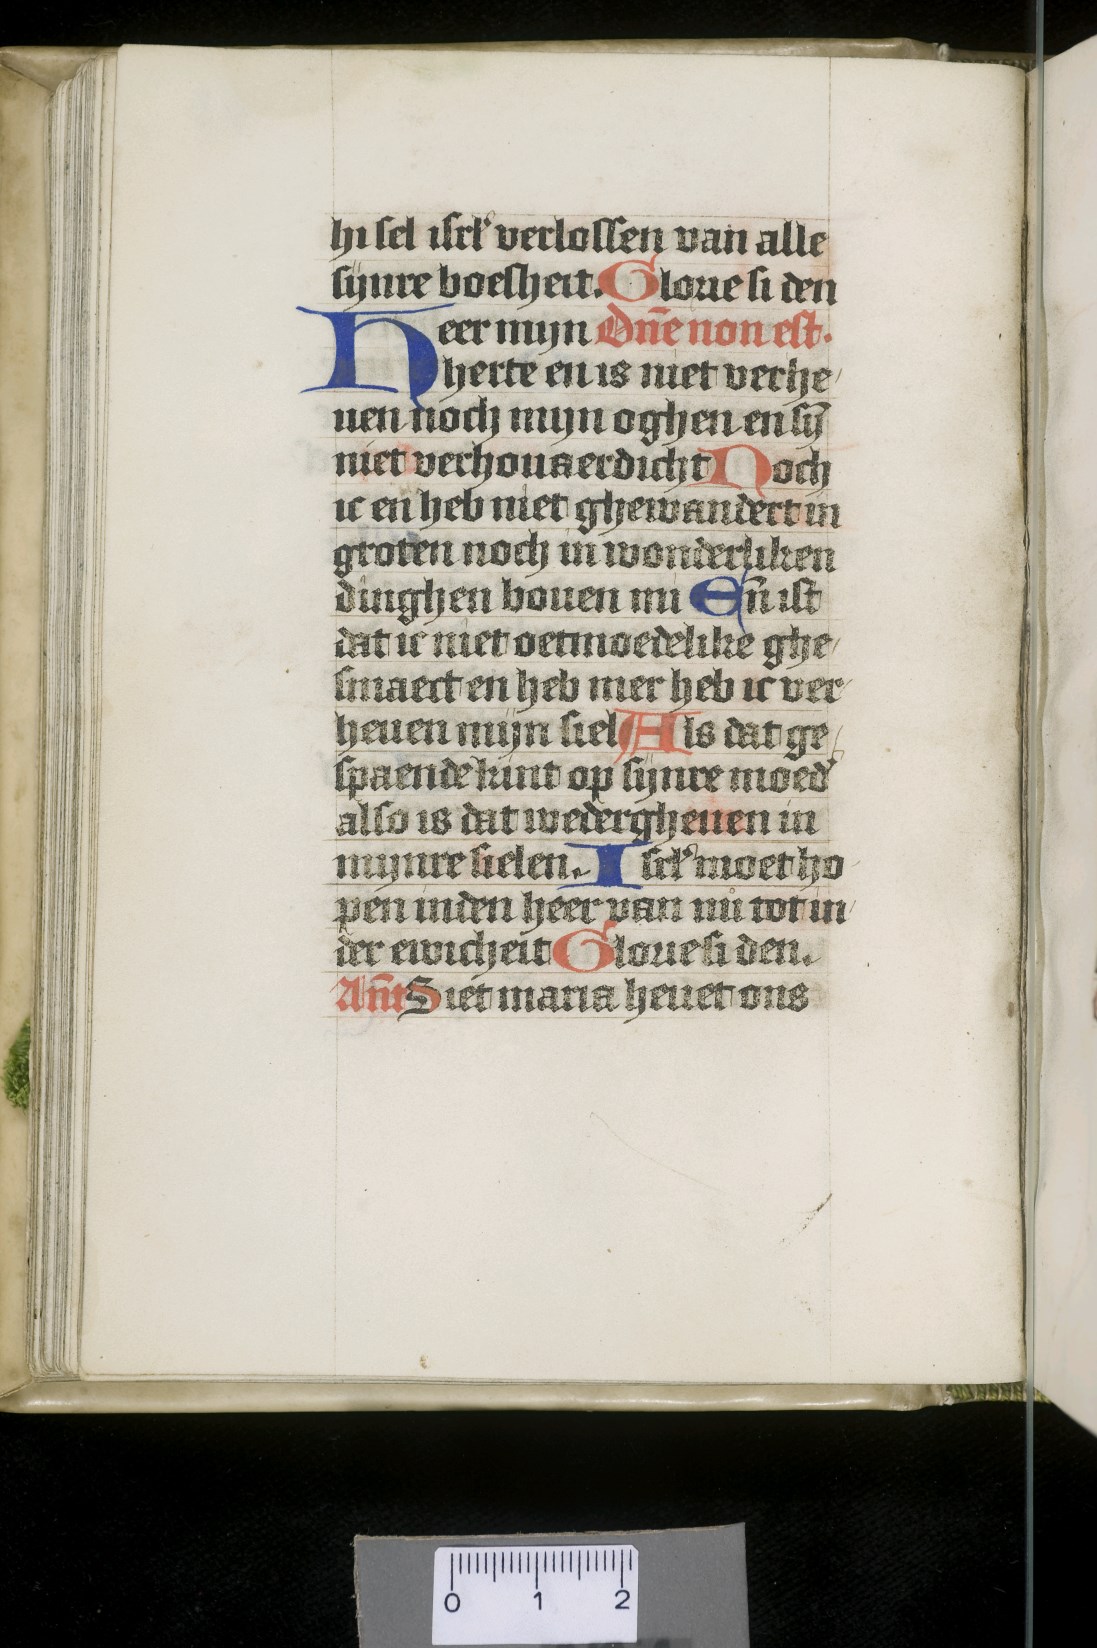 hi sel isrl' verlossen van alle
sijnre boesheit. Glorie si den
Heer mijn Dn̄e non est.
herte en is niet verhe
uen noch mijn oghen en sij̄
niet verhouaerdicht Noch
ic en heb niet ghewandert in
groten noch in wonderliken
dinghen bouen mi En̄ ist
dat ic niet oetmoedelike ghe
smaect en heb mer heb ic ver
heuen mijn siel Als dat ge
spaende kint op sijnre moed'
also is dat wedergheuen in
mijnre sielen. Isrl' moet ho
pen inden heer van nu tot in
der ewicheit Glorie si den.
An̄t Siet maria heuet ons
0 1 2